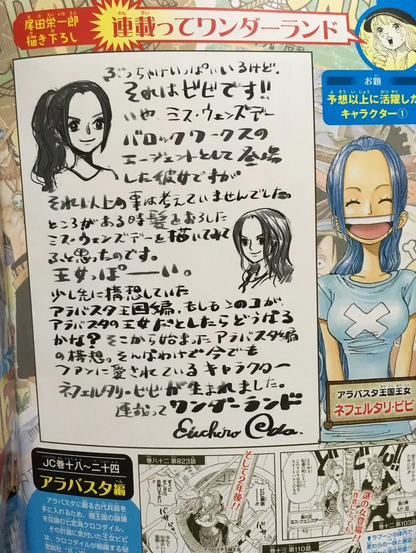 尾田栄一郎
描き下ろし
連載ってワンダーランド
お題
予想以上に活躍した
キャラクター①
ぶっちゃけいっぱいいるけど、
それはビビです!!
いや、ミス・ウェンズデー
バロックワークスの
エージェントとして登場
した彼女ですが
それ以上の事は考えていませんでした。
ところがある時髪をおろした
ミス・ウェンズデーを描いてみて
ふと思ったのです。
王女っぽーい。
少し先に構想していた
アラバスタ王国編、もしもこのコが、
アラバスタの王女だとしたらどうなる
かな?そこから始まったアラバスタ編
の構想。そんなわけで今でも
ファンに愛されているキャラクター
ネフェルタリ・ビビが生まれました。
連載ってワンダーランド
Eiichiro Oda
アラバスタ王国王女
ネフェルタリ・ビビ
JC巻十八〜二十四
アラバスタ編
アラバスタに眠る古代兵器を
手に入れるため、国王軍の崩壊
を目論む七武海クロコダイル。
その計画に気付いた王女ビビ
巻八十二 第823話
そして2年後!!
謎の女登場!!
第110話
第103話